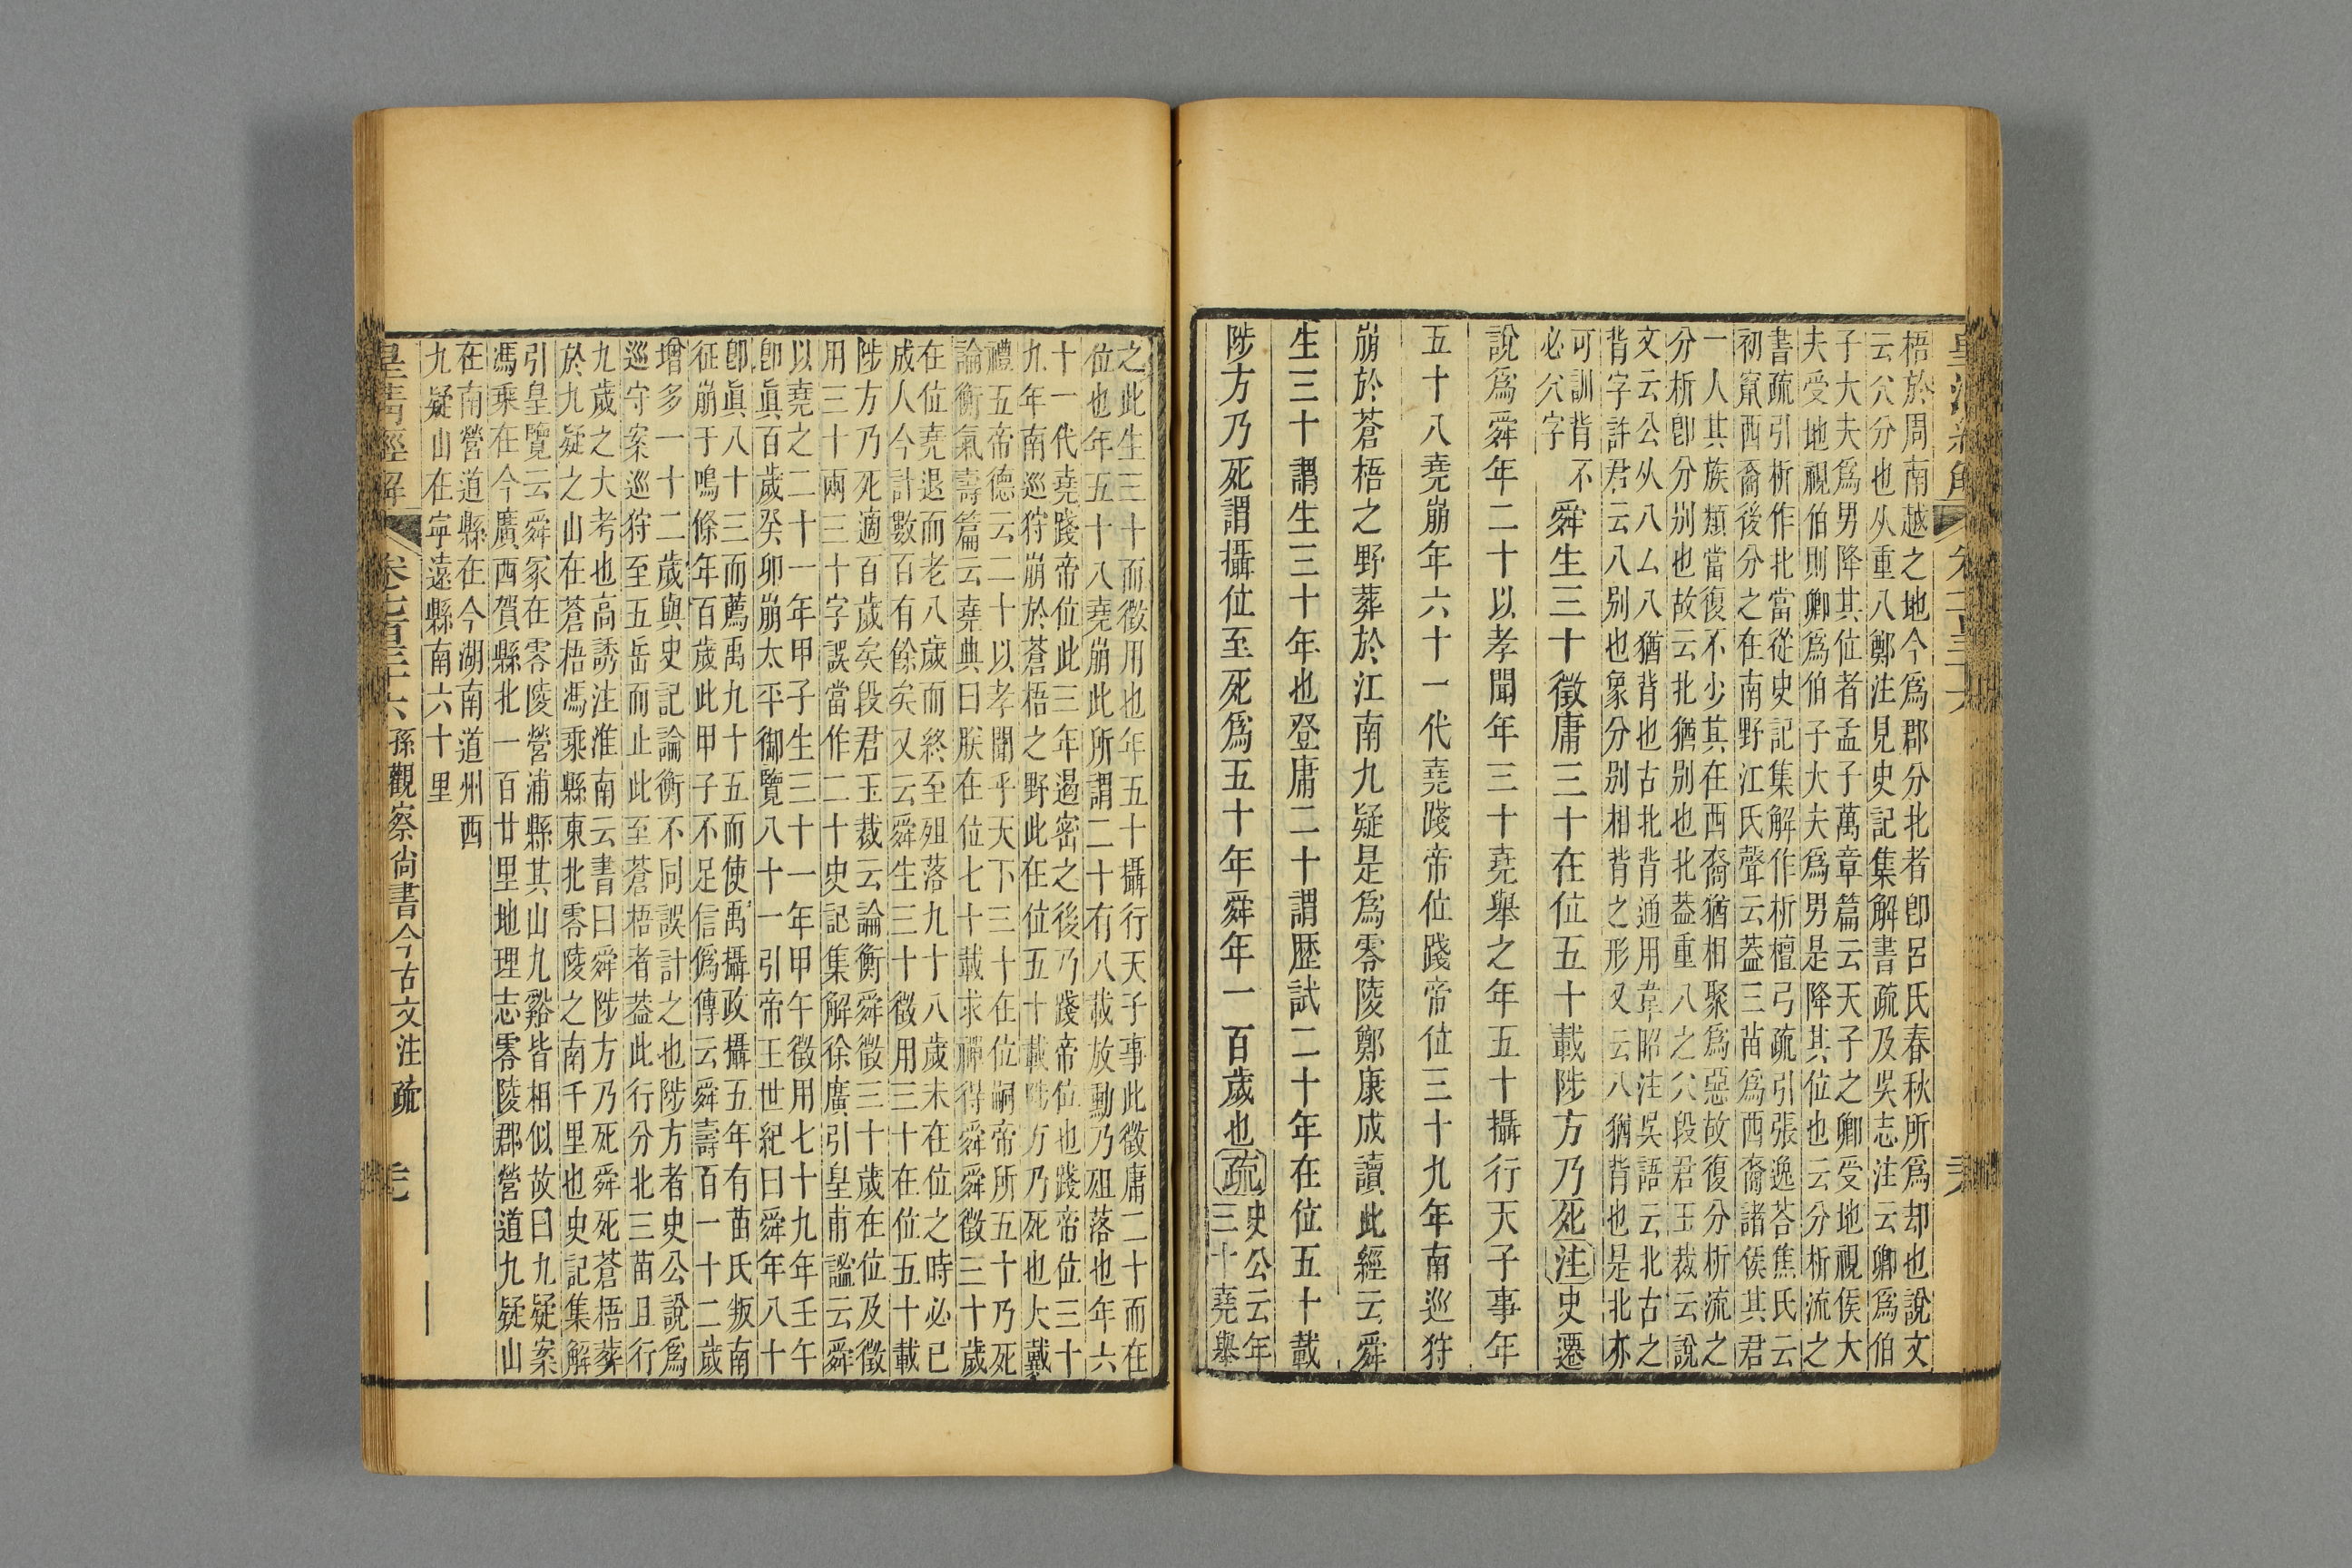 梧於周南越之地今爲郡分北者卽呂氏春秋所爲却也說文
云𠔁分也从重八鄭注見史記集解書疏及吳志注云卿爲伯
子大夫爲男降其位者孟子萬章篇云天子之卿受地視侯大
夫受地視伯則卿爲伯子大夫爲男是降其位也云分析流之
書疏引析作北當從史記集解作析檀弓疏引張逸荅焦氏云
初竄西裔後分之在南野江氏聲云葢三苗爲西裔諸侯其君
一人其族類當復不少其在西裔猶相聚爲惡故復分析流之
分析卽分别也故云北猶别也北葢重八之𠔁段君玉裁云說
文云公从八厶八猶背也古北背通用韋昭注吳語云北古之
背字許君云八别也象分别相背之形又云八猶背也是北亦
可訓背不
必𠔁字
舜生三十徵庸三十在位五十載陟方乃死注史遷
說爲舜年二十以孝聞年三十堯舉之年五十攝行天子事年
五十八堯崩年六十一代堯踐帝位踐帝位三十九年南巡狩
崩於蒼梧之野葬於江南九疑是爲零陵鄭康成讀此經云舜
生三十謂生三十年也登庸二十謂歴試二十年在位五十載
陟方乃死謂攝位至死爲五十年舜年一百歲也疏
史公云年
三十堯舉
之此生三十而徵用也年五十攝行天子事此徵庸二十而在
位也年五十八堯崩此所謂二十有八載放勳乃殂落也年六
十一代堯踐帝位此三年遏密之後乃踐帝位也踐帝位三十
九年南巡狩崩於蒼梧之野此在位五十載陟方乃死也大戴
禮五帝德云二十以孝聞乎天下三十在位嗣帝所五十乃死
論衡氣壽篇云堯典曰朕在位七十載求禪得舜舜徵三十歲
在位堯退而老八歲而終至殂落九十八歲未在位之時必已
成人今計數百有餘矣又云舜生三十徵用三十在位五十載
陟方乃死適百歲矣段君玉裁云論衡舜徵三十歲在位及徵
用三十兩三十字誤當作二十史記集解徐廣引皇甫謐云舜
以堯之二十一年甲子生三十一年甲午徵用七十九年壬午
卽眞百歲癸卯崩太平御覽八十一引帝王世紀曰舜年八十
卽眞八十三而薦禹九十五而使禹攝政攝五年有苗氏叛南
征崩于鳴條年百歲此甲子不足信僞傳云舜壽百一十二歲
增多一十二歲與史記論衡不同誤計之也陟方者史公說爲
巡守案巡狩至五岳而止此至蒼梧者葢此行分北三苗且行
九歲之大考也高誘注淮南云書曰舜陟方乃死舜死蒼梧葬
於九疑之山在蒼梧馮乘縣東北零陵之南千里也史記集解
引皇覽云舜冢在零陵營浦縣其山九谿皆相似故曰九疑案
馮乘在今廣西賀縣北一百廿里地理志零陵郡營道九疑山
在南營道縣在今湖南道州西
九疑山在寧遠縣南六十里
皇淸經解 卷七百三十六 孫觀察尙書今古文注疏